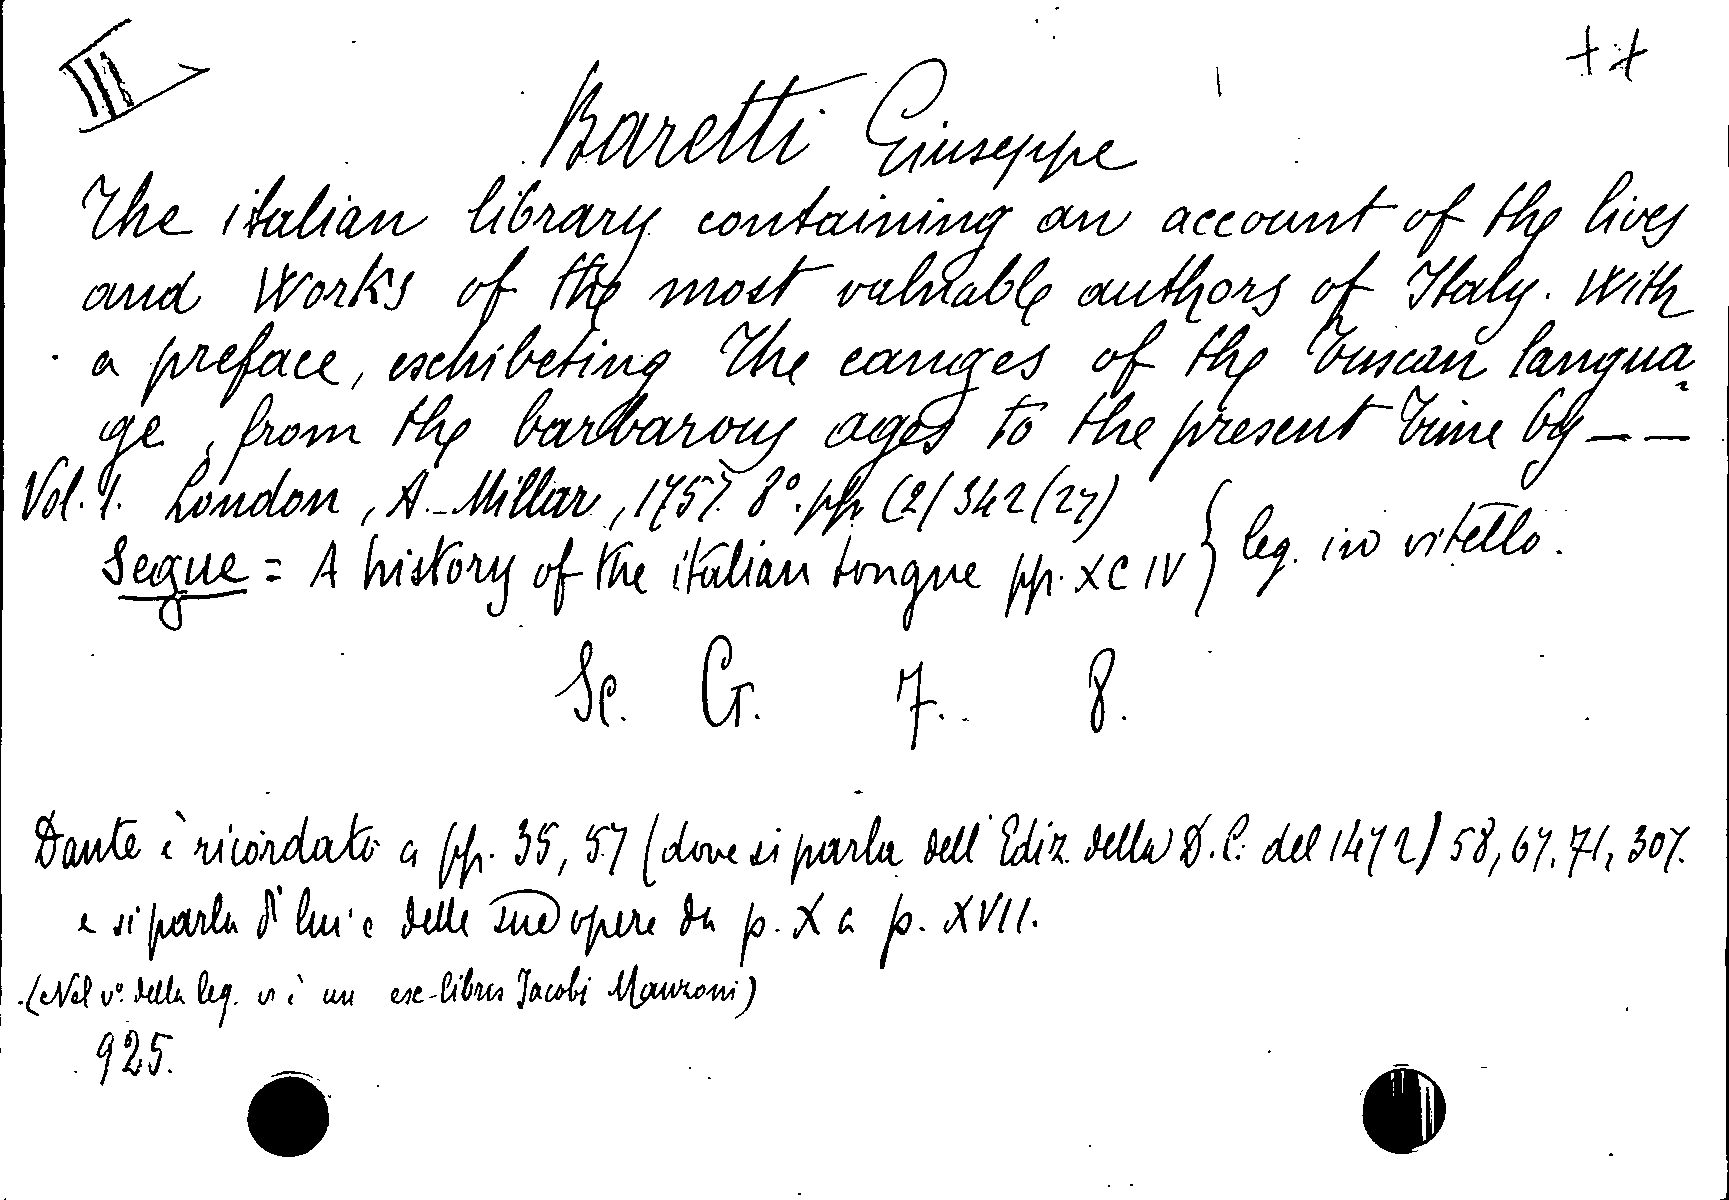 III
++
Baretti Giuseppe
The italian library containing an account of the lives
and Works of the most valuable authors of Italy. With
a preface, eschibeting The canges of the Tuscan langua-
ge, from the barbarous ages to the present time by — —
Vol. 1. London, A. Millar, 1757. 8°. pp. (2) 342 (27)
Segue = A history of the italian tongue pp. XCIV } leg. in vitello.
Sc. G. 7. 8.
Dante è ricordato a pp. 35, 57 (dove si parla dell'Ediz. della D. C. del 1472) 58, 67, 71, 307.
e si parla di lui e delle sue opere da p. X a p. XVII.
(Nel v° della leg. vi è un exe-libris Jacobi Manzoni)
925.